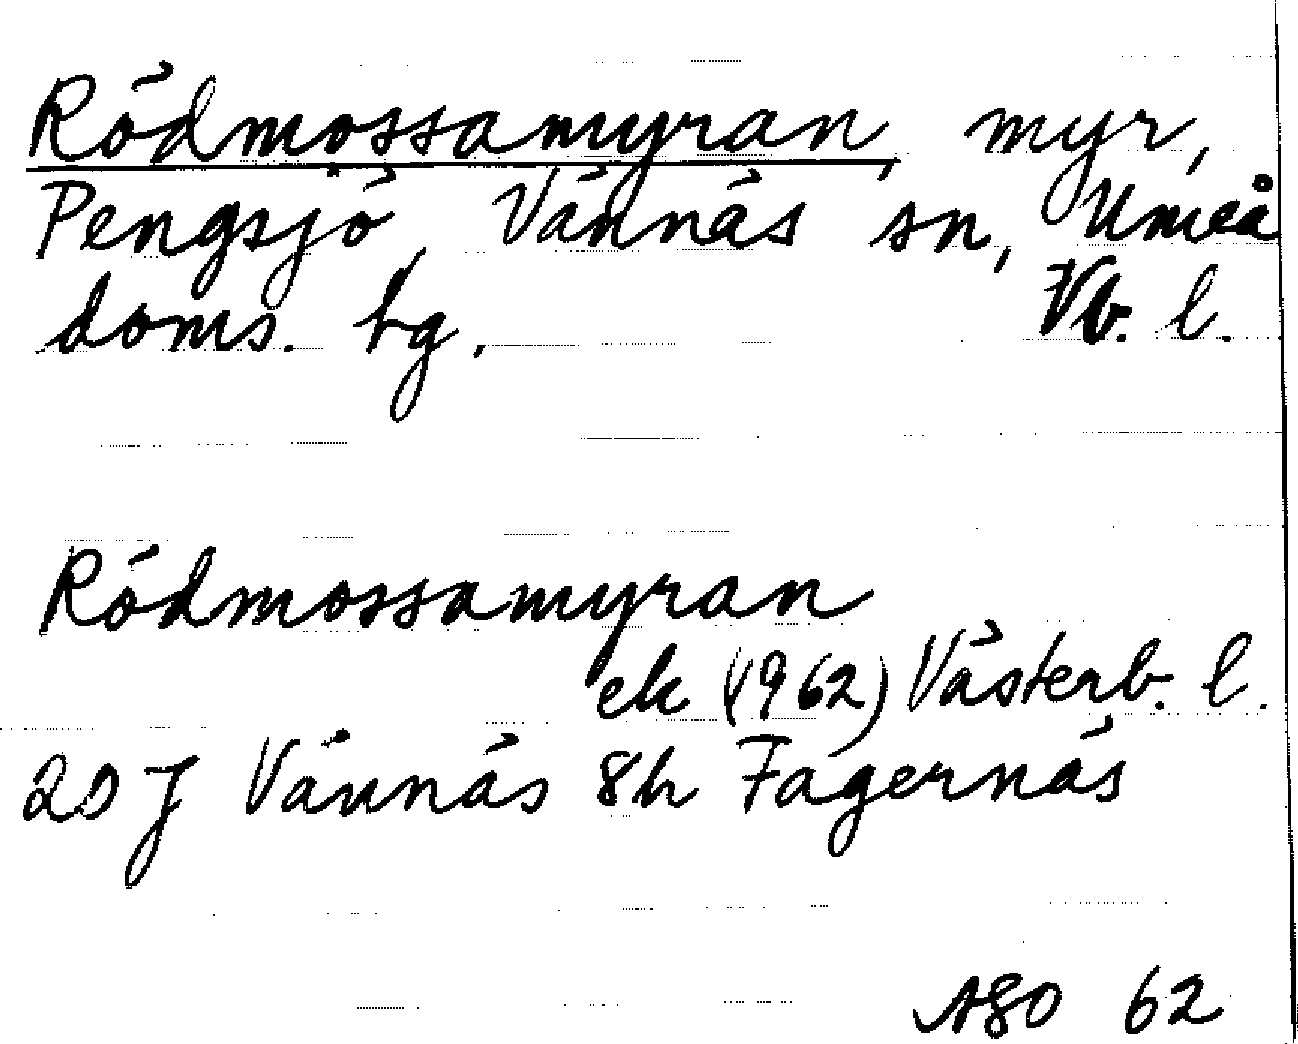 Rödmossamyran, myr,
Pengsjö, Vännäs sn, Umeå
doms. tg. Vb. l.
Rödmossamyran
ek (1962) Västerb. l.
20 J Vännäs 8h Fagernäs
ASO 62